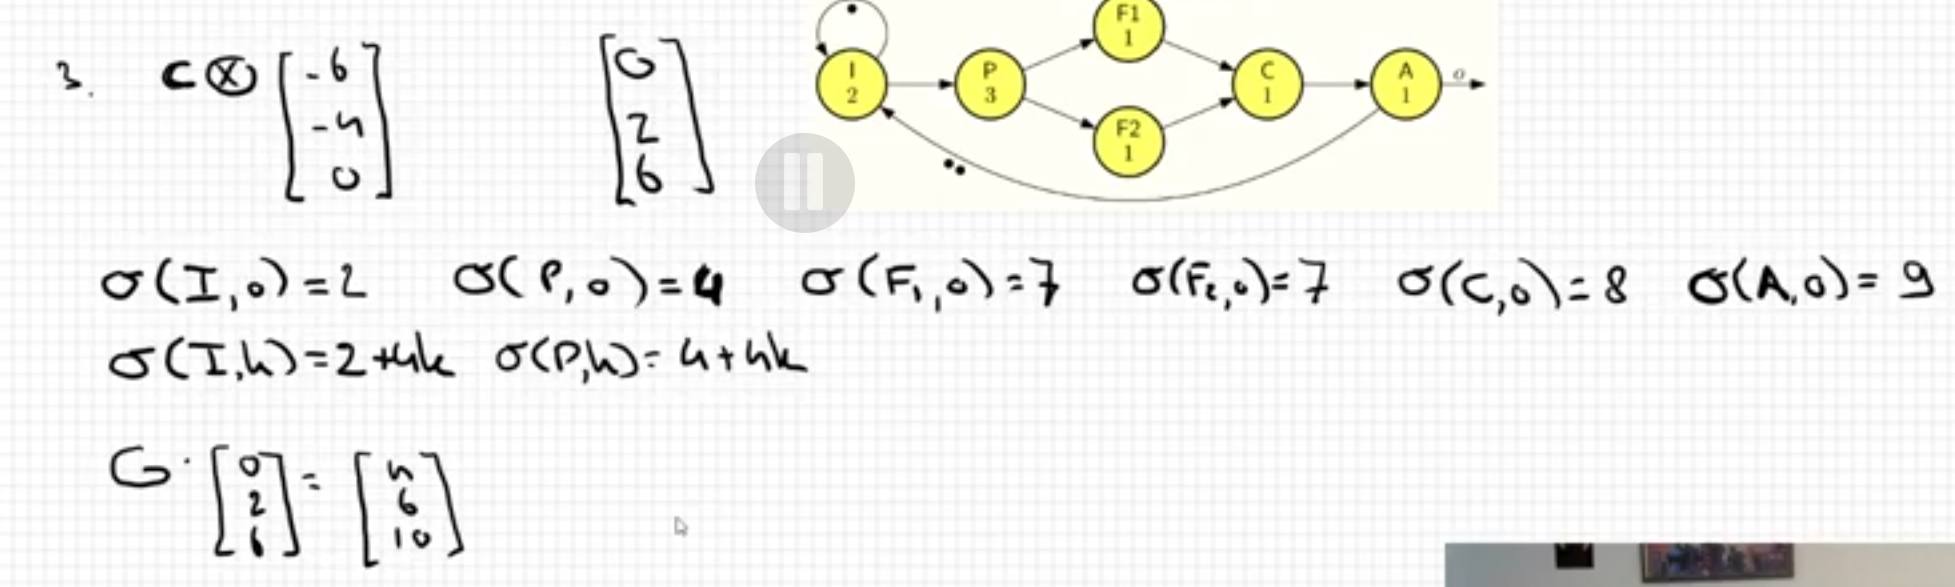 3. C⊗ [-6 -4 0] [0 2 6]
I 2 P 3 F1 1 F2 1 C 1 A 1 o
σ(I,0)=2 σ(P,0)=4 σ(F₁,0)=7 σ(F₂,0)=7 σ(C,0)=8 σ(A,0)=9
σ(I,k)=2+4k σ(P,k)=4+4k
G·[0 2 6]=[4 6 10]